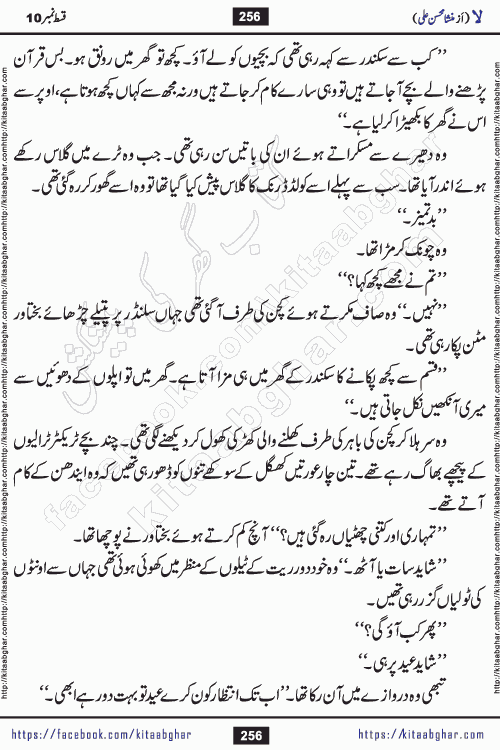 لا (از منشا محسن علی) 256 قسط نمبر 10
’’کب سے سکندر سے کہہ رہی تھی کہ بچیوں کو لے آؤ۔ کچھ تو گھر میں رونق ہو۔ بس قرآن
پڑھنے والے بچے آ جاتے ہیں تو وہی سارے کام کر جاتے ہیں ورنہ مجھ سے کہاں کچھ ہوتا ہے، اوپر سے
اس نے گھر کا بکھیڑا کر لیا ہے۔‘‘
وہ دھیرے سے مسکراتے ہوئے ان کی باتیں سن رہی تھی۔ جب وہ ٹرے میں گلاس رکھے
ہوئے اندر آیا تھا۔ سب سے پہلے اسے کولڈ ڈرنک کا گلاس پیش کیا گیا تھا تو وہ اسے گھور کر رہ گئی تھی۔
’’بدتمیز۔‘‘
وہ چونک کر مڑا تھا۔
’’تم نے مجھے کچھ کہا؟‘‘
’’نہیں۔‘‘ وہ صاف مکرتے ہوئے کچن کی طرف آ گئی تھی جہاں سلنڈر پر پتیلے چڑھائے بختاور
مٹن پکا رہی تھی۔
’’قسم سے کچھ پکانے کا سکندر کے گھر میں ہی مزا آتا ہے۔ گھر میں تو اپلوں کے دھوئیں سے
میری آنکھیں نکل جاتی ہیں۔‘‘
وہ سر ہلا کر کچن کی باہر کی طرف کھلنے والی کھڑکی کھول کر دیکھنے لگی تھی۔ چند بچے ٹریکٹر ٹرالیوں
کے پیچھے بھاگ رہے تھے۔ تین چار عورتیں کھگل کے سوکھے تنوں کو ڈھو رہی تھیں کہ وہ ایندھن کے کام
آتے تھے۔
’’تمہاری اور کتنی چھٹیاں رہ گئی ہیں؟‘‘ آنچ کم کرتے ہوئے بختاور نے پوچھا تھا۔
’’شاید سات یا آٹھ۔‘‘ وہ خود دور ریت کے ٹیلوں کے منظر میں کھوئی ہوئی تھی جہاں سے اونٹوں
کی ٹولیاں گزر رہی تھیں۔
’’پھر کب آؤ گی؟‘‘
’’شاید عید پر ہی۔‘‘
تبھی وہ دروازے میں آن رکا تھا۔ ’’اب تک انتظار کون کرے عید تو بہت دور ہے ابھی۔‘‘
https://facebook.com/kitaabghar 256 https://kitaabghar.com